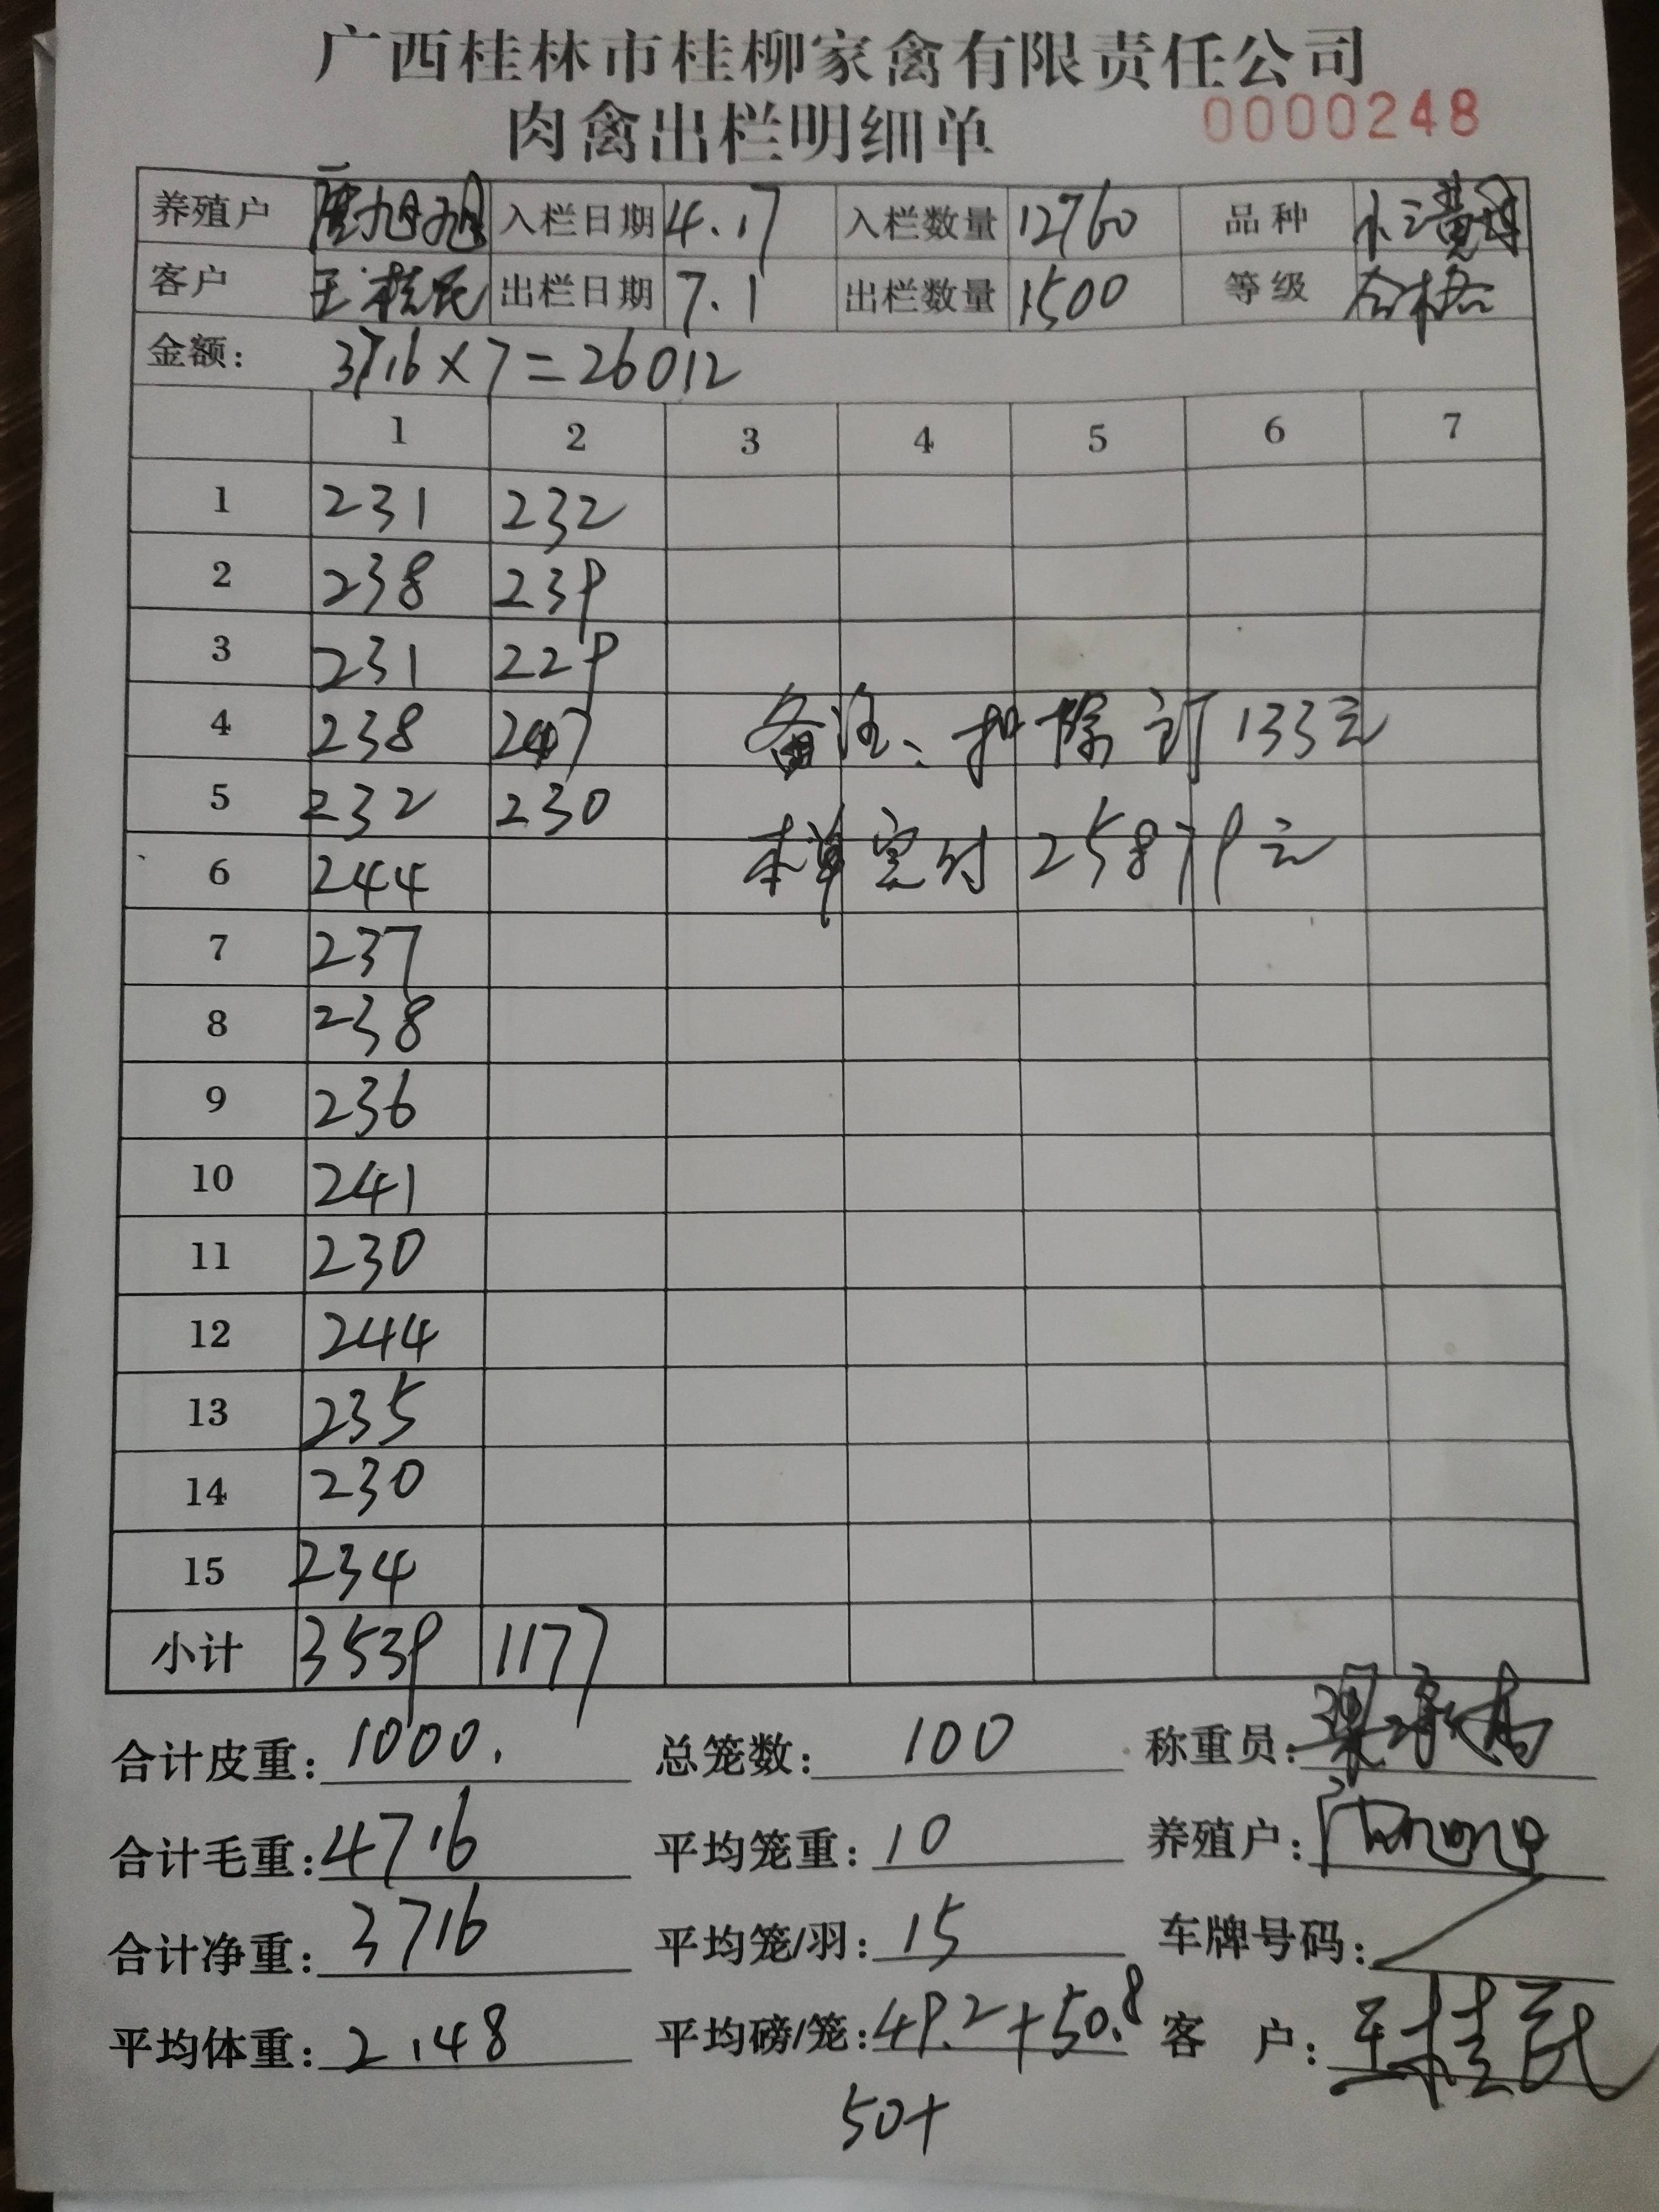 广西桂林市桂柳家禽有限责任公司
肉禽出栏明细单 0000248
养殖户 唐旭旭 入栏日期 4.17 入栏数量 12760 品种
客户 王桂民 出栏日期 7.1 出栏数量 1500 等级 合格
金额: 3716×7=26012
1 2 3 4 5 6 7
1 231 232
2 238 239
3 231 229
4 238 247 备注、扣除 133元
5 232 230
6 244 本单实付 25879元
7 237
8 238
9 236
10 241
11 230
12 244
13 235
14 230
15 234
小计 3539 1177
合计皮重: 1000. 总笼数: 100 称重员:
合计毛重: 4716 平均笼重: 10 养殖户:
合计净重: 3716 平均笼/羽: 15 车牌号码:
平均体重: 2.48 平均磅/笼: 49.2+50.8 客户: 王桂民
50+